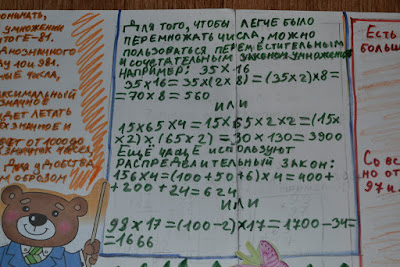 ПОНИМАТЬ,
УМНОЖЕНИИ
ИТОГЕ-81.
ДНОЗНАЧНОГО
10 И 981.
ЧНЫЕ ЧИСЛА,
КСИМАЛЬНЫЙ
ЗНАЧНОЕ
УДЕТ ЛЕТАТЬ
ХЗНАЧНОЕ И
ЕТ ОТ 10000
ЗНАЧНЫХ ЧИСЕЛ,
ДЛЯ УДОБСТВА
М ОБРАЗОМ
ДЛЯ ТОГО, ЧТОБЫ ЛЕГЧЕ БЫЛО
ПЕРЕМНОЖАТЬ ЧИСЛА, МОЖНО
ПОЛЬЗОВАТЬСЯ ПЕРЕМЕСТИТЕЛЬНЫМ
И СОЧЕТАТЕЛЬНЫМ ЗАКОНОМ УМНОЖЕНИЯ
НАПРИМЕР: 35×16
35×16=35×(2×8)=(35×2)×8=
=70×8=560
ИЛИ
15×65×4=15×65×2×2=(15×
×2)×(65×2)=30×130=3900
ЕЩЁ ЧАЩЕ ИСПОЛЬЗУЮТ
РАСПРЕДЕЛИТЕЛЬНЫЙ ЗАКОН:
156×4=(100+50+6)×4=400+
+200+24=624
ИЛИ
98×17=(100-2)×17=1700-34=
=1666
ЕСТЬ
БОЛЬШ
СО ВС
НО ОТ
97 И